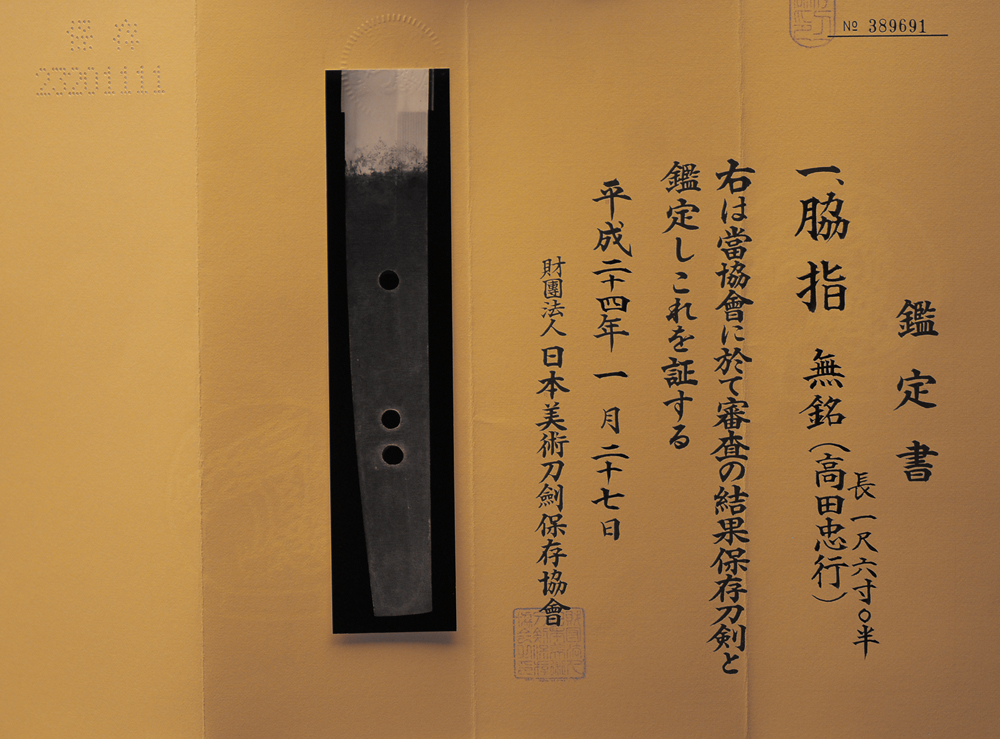 № 389691
鑑定書
一、脇指 無銘(高田忠行)
長一尺六寸〇半
右は當協會に於て審査の結果保存刀剣と
鑑定しこれを証する
平成二十四年一月二十七日
財團法人日本美術刀劍保存協會
保存
23201111